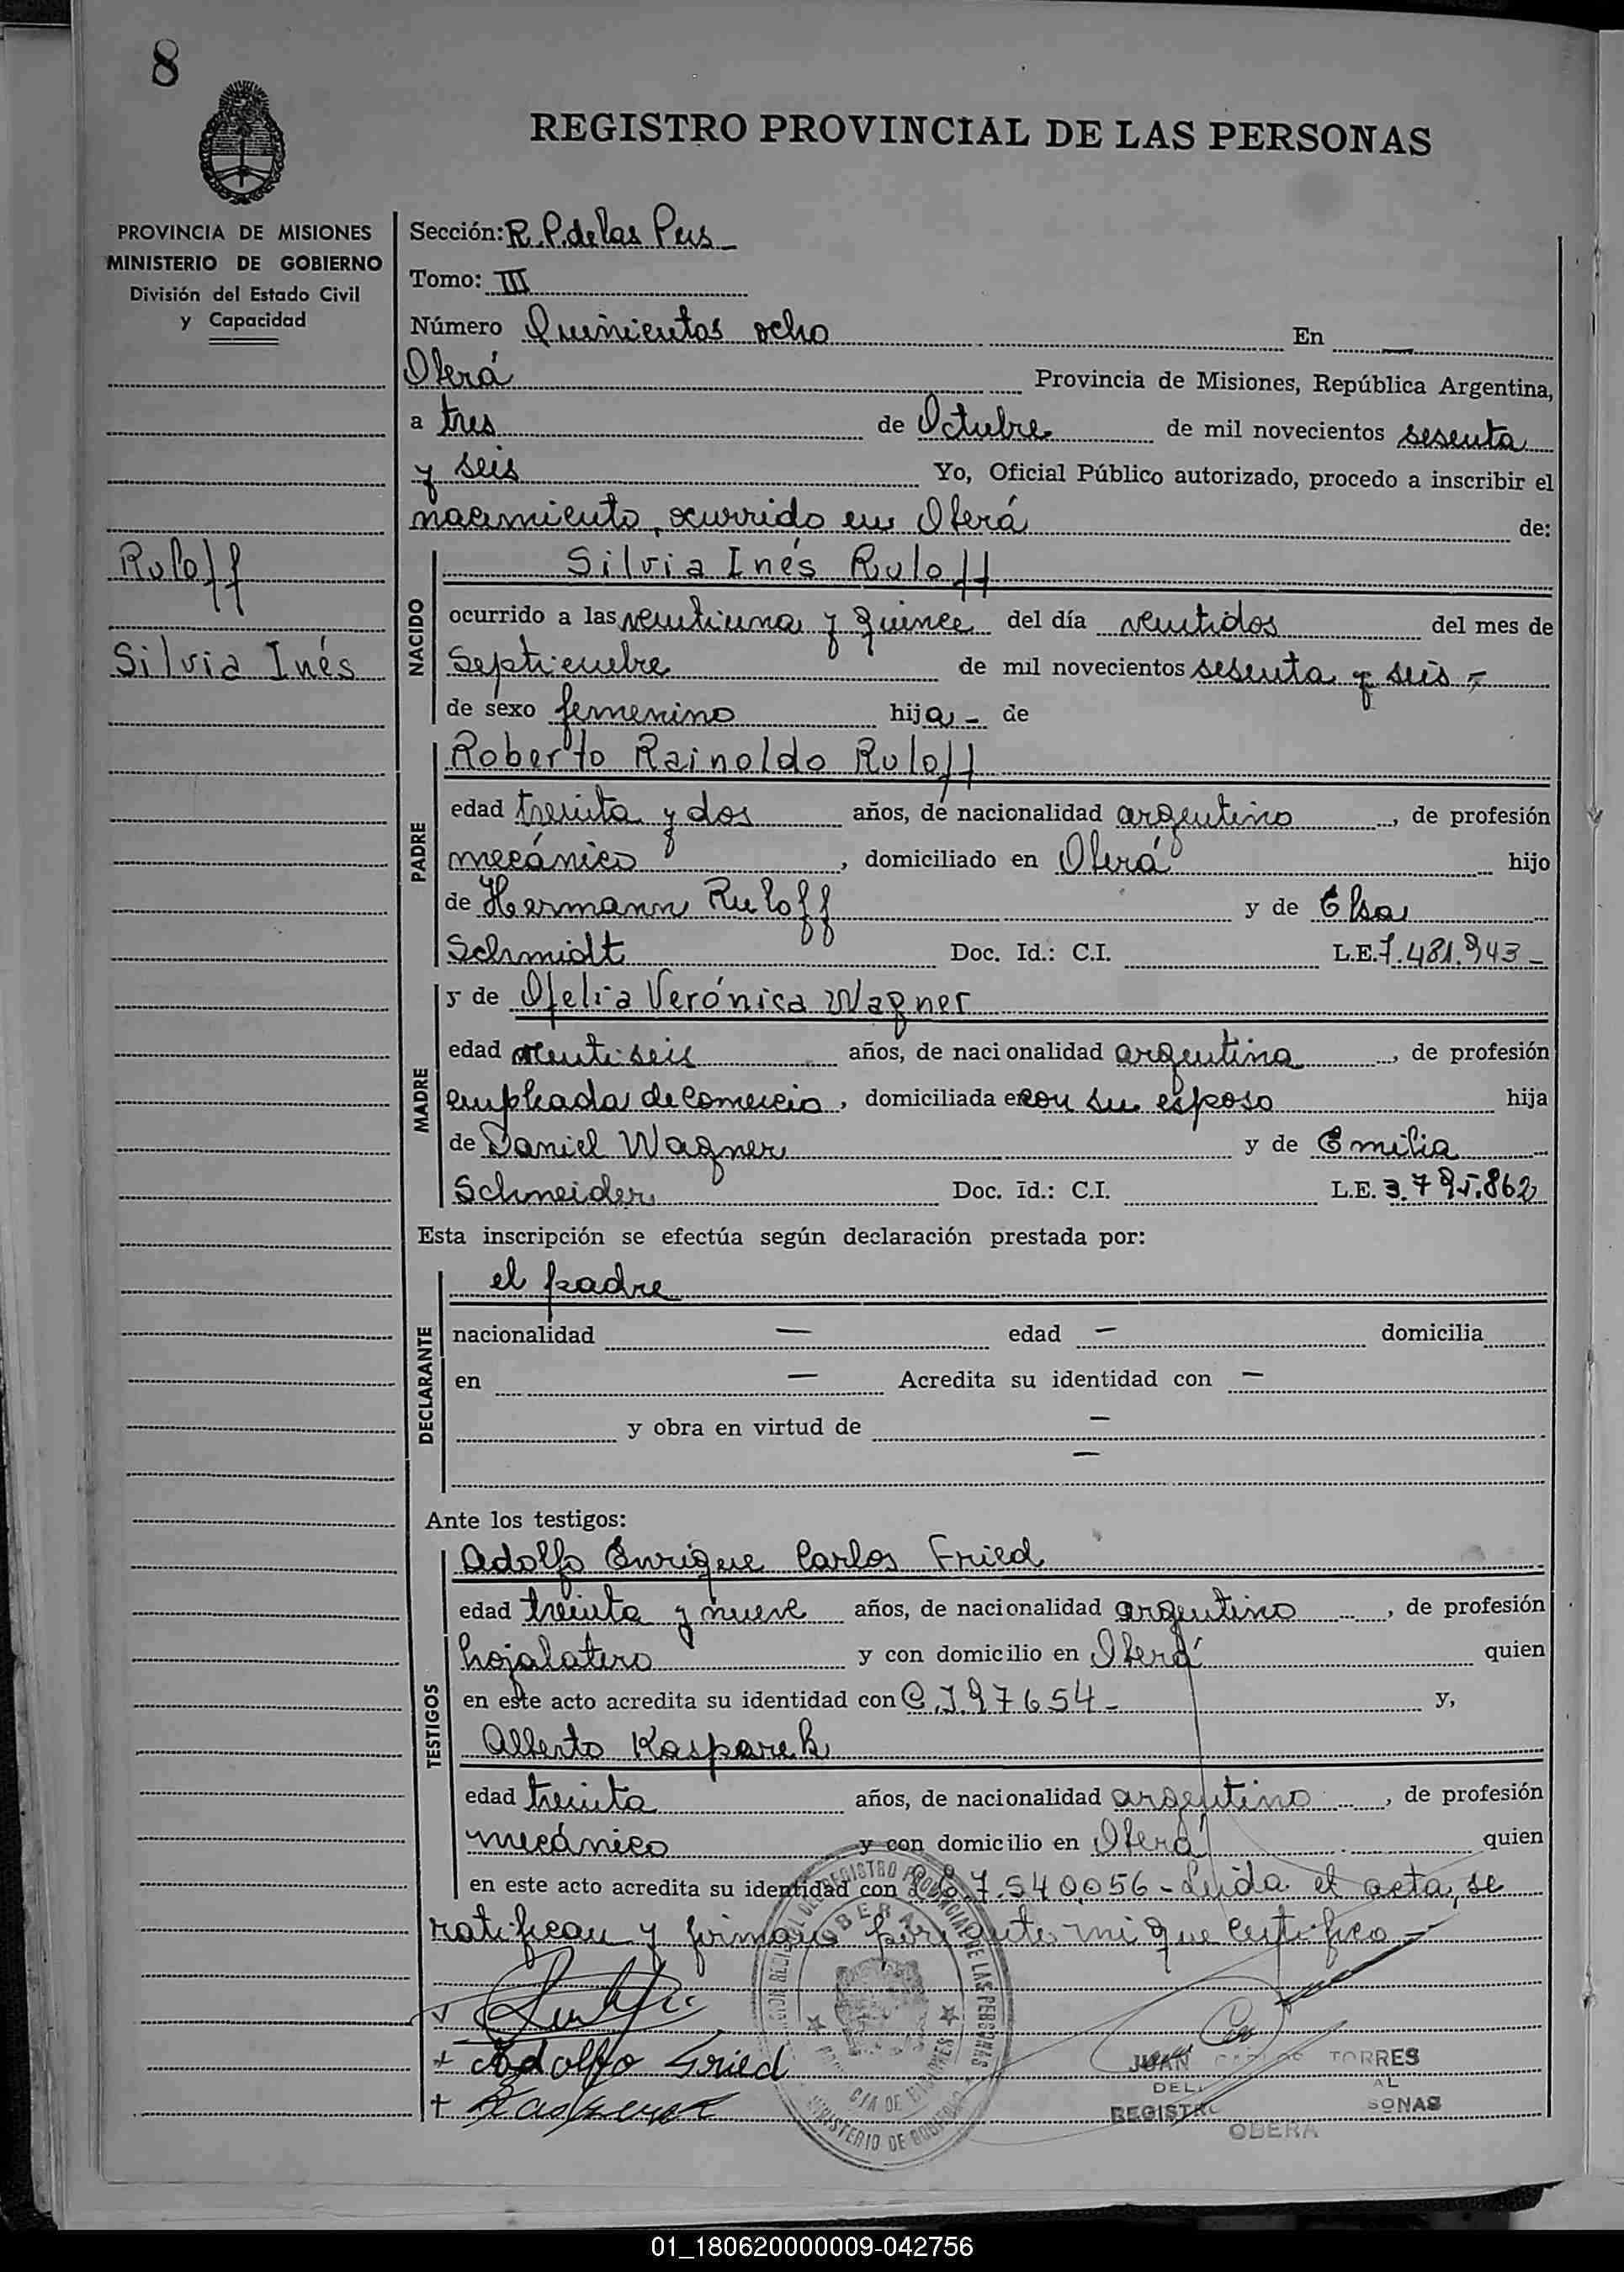 8
REGISTRO PROVINCIAL DE LAS PERSONAS
PROVINCIA DE MISIONES
MINISTERIO DE GOBIERNO
División del Estado Civil
y Capacidad
Ruloff
Silvia Inés
Sección: R.P. de las Pers
Tomo: III
Número Quinientos ocho En —
Oberá Provincia de Misiones, República Argentina,
a tres de Octubre de mil novecientos sesenta
y seis Yo, Oficial Público autorizado, procedo a inscribir el
nacimiento, ocurrido en Oberá de:
NACIDO
Silvia Inés Ruloff
ocurrido a las veintiuna y quince del día veintidos del mes de
Septiembre de mil novecientos sesenta y seis -
de sexo femenino hija - de
PADRE
Roberto Rainoldo Ruloff
edad treinta y dos años, de nacionalidad argentino, de profesión
mecánico, domiciliado en Oberá hijo
de Hermann Ruloff y de Elsa
Schmidt Doc. Id.: C.I. L.E. 7.481.943 -
MADRE
y de Ofelia Verónica Wagner
edad veintiseis años, de nacionalidad argentina, de profesión
empleada de Comercio, domiciliada en con su esposo hija
de Daniel Wagner y de Emilia
Schneider Doc. Id.: C.I. L.E. 3.795.862
Esta inscripción se efectúa según declaración prestada por:
DECLARANTE
el padre
nacionalidad — edad — domicilia
en — Acredita su identidad con —
y obra en virtud de —
—
Ante los testigos:
TESTIGOS
Adolfo Enrique Carlos Fried
edad treinta y nueve años, de nacionalidad argentino, de profesión
hojalatero y con domicilio en Oberá quien
en este acto acredita su identidad con C.I. 97654 - y,
Alberto Kasparek
edad treinta años, de nacionalidad argentino, de profesión
mecánico y con domicilio en Oberá quien
en este acto acredita su identidad con L.E. 7.540.056 - Leida el acta, se
ratifican y firman por ante mi que certifico -
+ Adolfo Fried
+ Kasparek
JUAN CARLOS TORRES
REGISTRO
OBERA
01_180620000009-042756